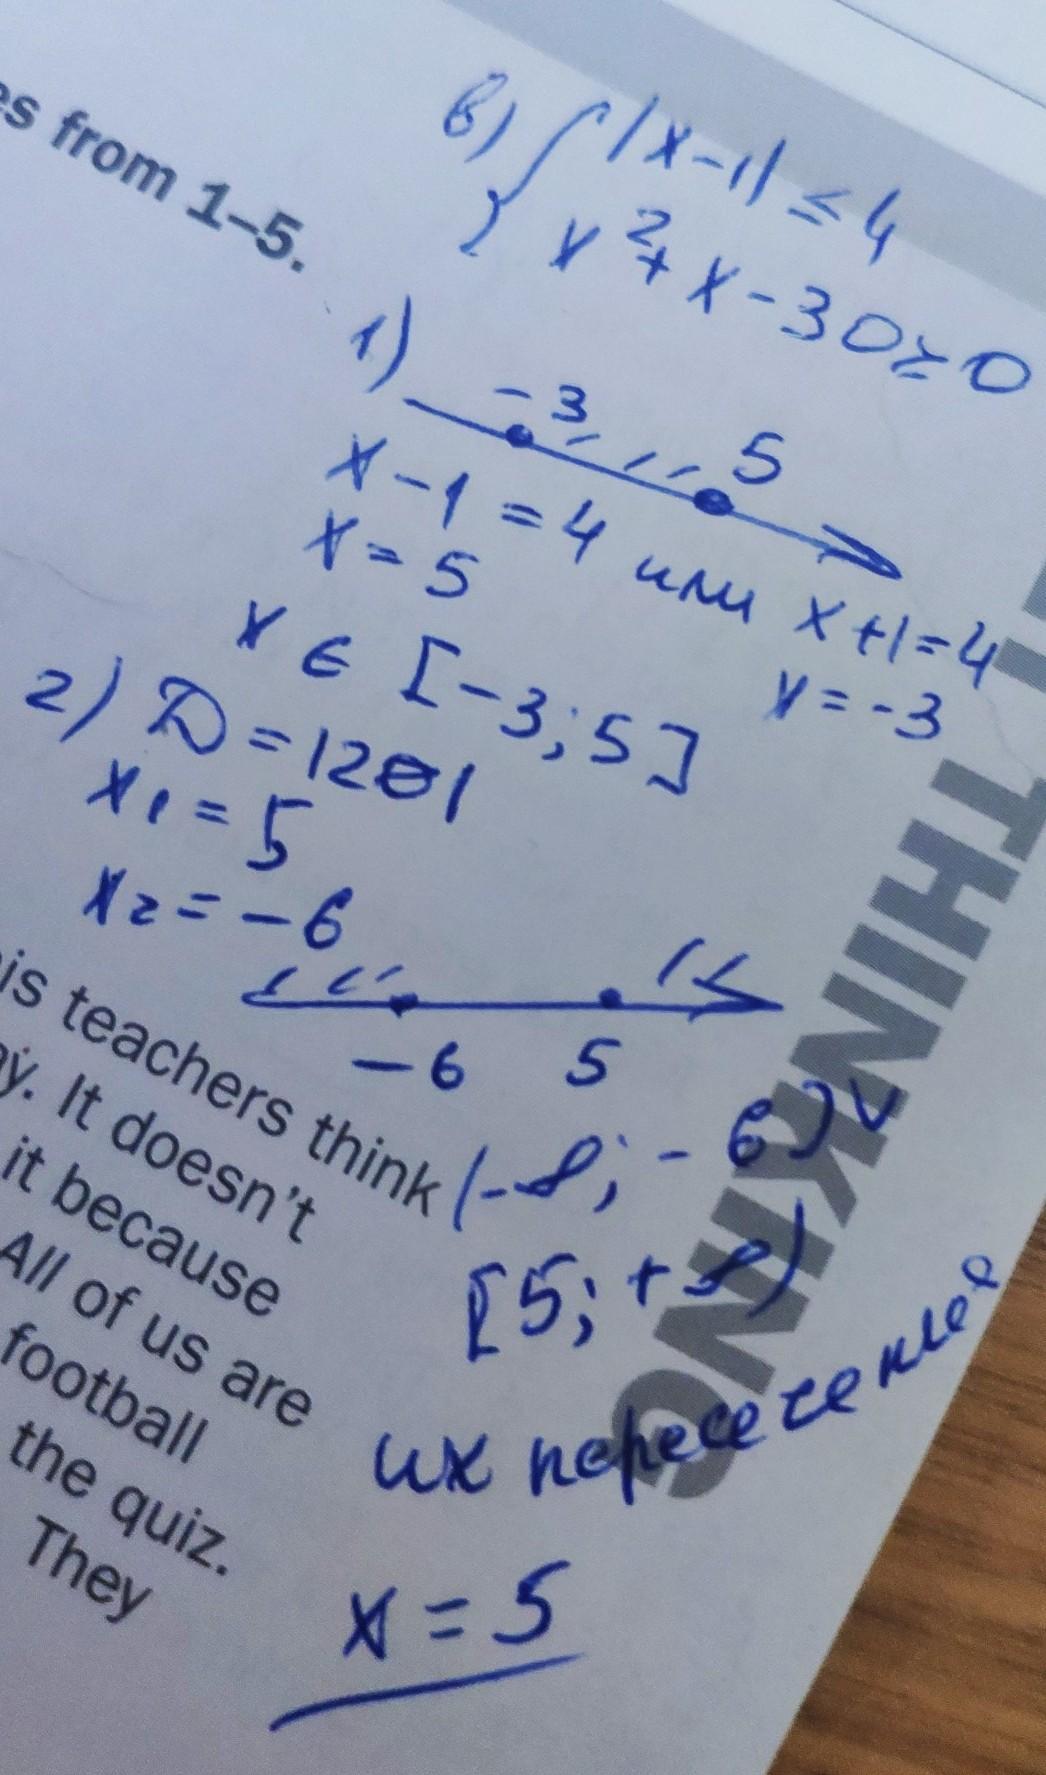 es from 1–5.
в) { |x-1| ≤ 4
x² + x - 30 ≥ 0
1)
-3 5
x - 1 = 4 или x + 1 = 4
x = 5 x = -3
x ∈ [-3; 5]
2) D = 121
x1 = 5
x2 = -6
-6 5
(-∞; -6] ∪
[5; +∞)
их пересечение
x = 5
is teachers think
y. It doesn't
it because
All of us are
football
the quiz.
They
THINKING